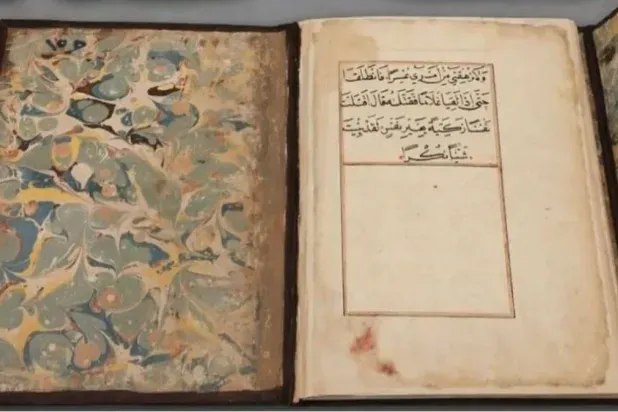 وَلَا تُرْهِقْنِي مِنْ أَمْرِي عُسْرًا فَانْطَلَقَا
حَتَّى إِذَا لَقِيَا غُلَامًا فَقَتَلَهُ قَالَ أَقَتَلْتَ
نَفْسًا زَكِيَّةً بِغَيْرِ نَفْسٍ لَقَدْ جِئْتَ
شَيْئًا نُكْرًا